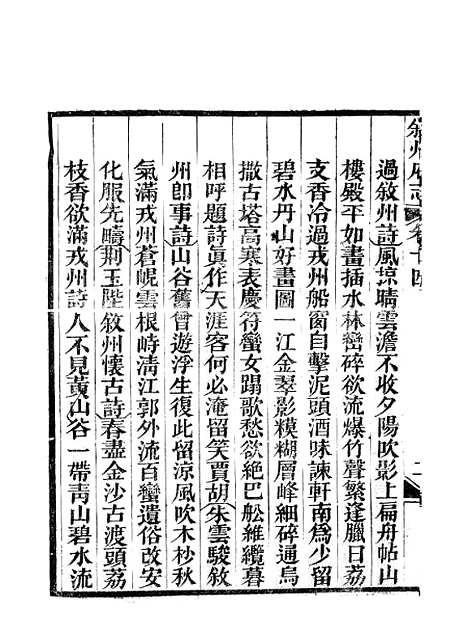 過敘州詩風掠晴雲澹不收夕陽吹影上扁舟帖山
樓殿平如畫插水林巒碎欲流爆竹聲繁逢臘日荔
支香冷過戎州船窗自擊泥頭酒味諫軒南爲少留
碧水丹山好畫圖一江金翠影糢糊層峰細碎通烏
撒古塔高寒表慶符蠻女蹋歌愁欲絕巴舩維纜暮
相呼題詩眞作天涯客何必淹留笑賈胡朱雲駿敘
州卽事詩山谷舊曾遊浮生復此留涼風吹木杪秋
氣滿戎州蒼峴雲根峙淸江郭外流百蠻遺俗改安
化服先疇荆玉陛敘州懷古詩春盡金沙古渡頭荔
枝香欲滿戎州詩人不見黃山谷一帶靑山碧水流
敘州府志
卷十四
二